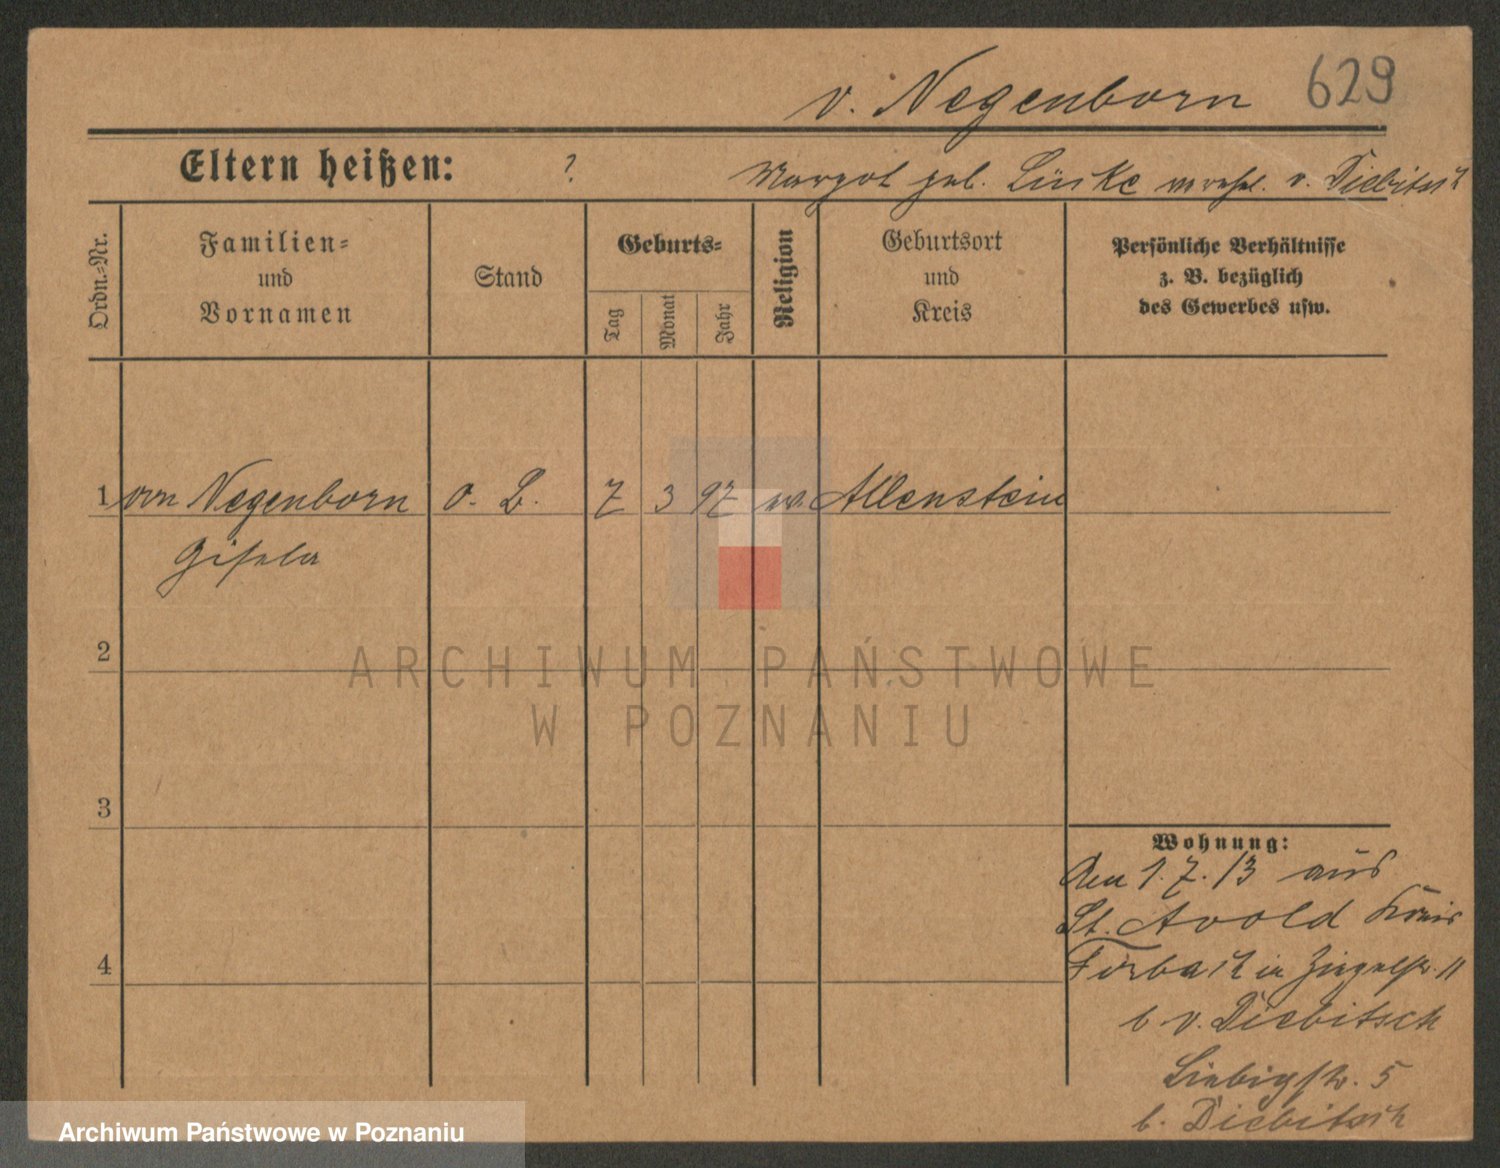 v. Negenborn 629
Eltern heißen: ? Margot geb. Lüske vereh. v. Diebitsch
Ordn.-Nr.
Familien-
und
Vornamen
Stand
Geburts-
Tag
Monat
Jahr
Religion
Geburtsort
und
Kreis
Persönliche Verhältnisse
z. B. bezüglich
des Gewerbes usw.
1 von Negenborn o. B. 7 3 97 ev. Allenstein
Gisela
2
ARCHIWUM PAŃSTWOWE
W POZNANIU
3
4
Wohnung:
Den 1. 7. 13 aus
St. Avold Kreis
Forbach in Ziegelstr. 11
b v. Diebitsch
Liebigstr. 5
b. Diebitsch
Archiwum Państwowe w Poznaniu